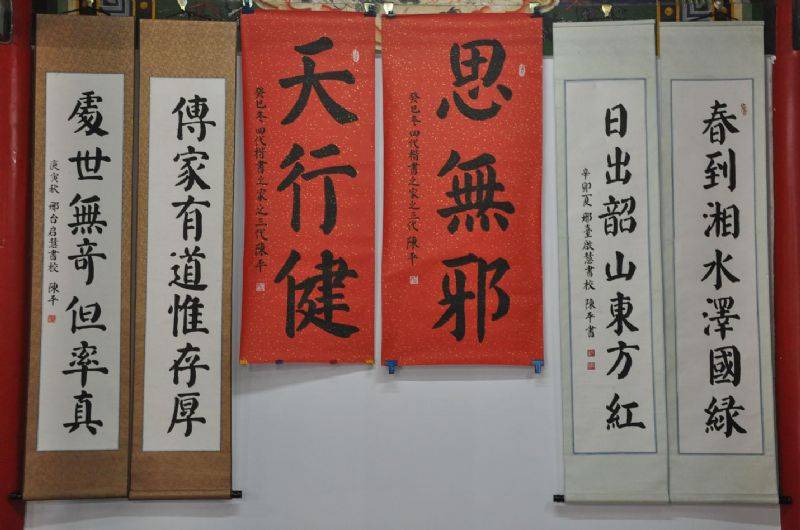 春到湘水澤國緑
日出韶山東方紅
辛卯夏 邢臺啟慧書校 陳平書
思無邪
癸巳冬 四代楷書之家之三代 陳平
天行健
癸巳冬 四代楷書之家之三代 陳平
傳家有道惟存厚
處世無奇但率真
庚寅秋 邢台启慧書校 陳平